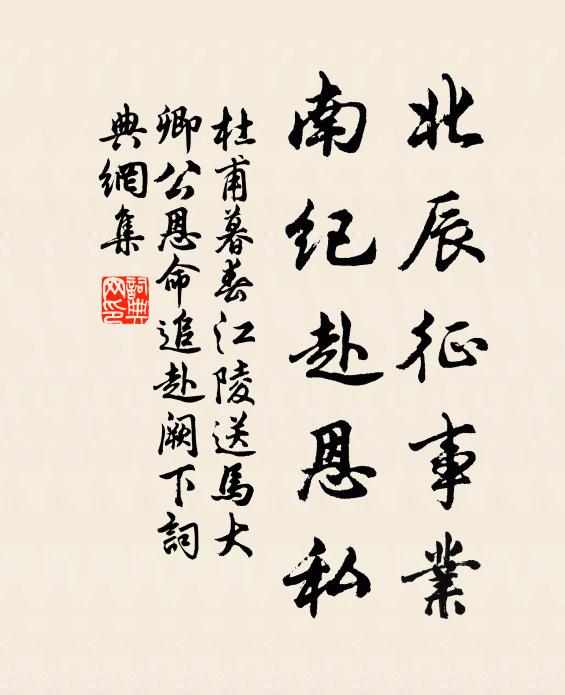 北辰征事業
南纪赴恩私
杜甫暮春江陵送馬大
卿公恩命追赴阙下詞
典網集
詞典
网印